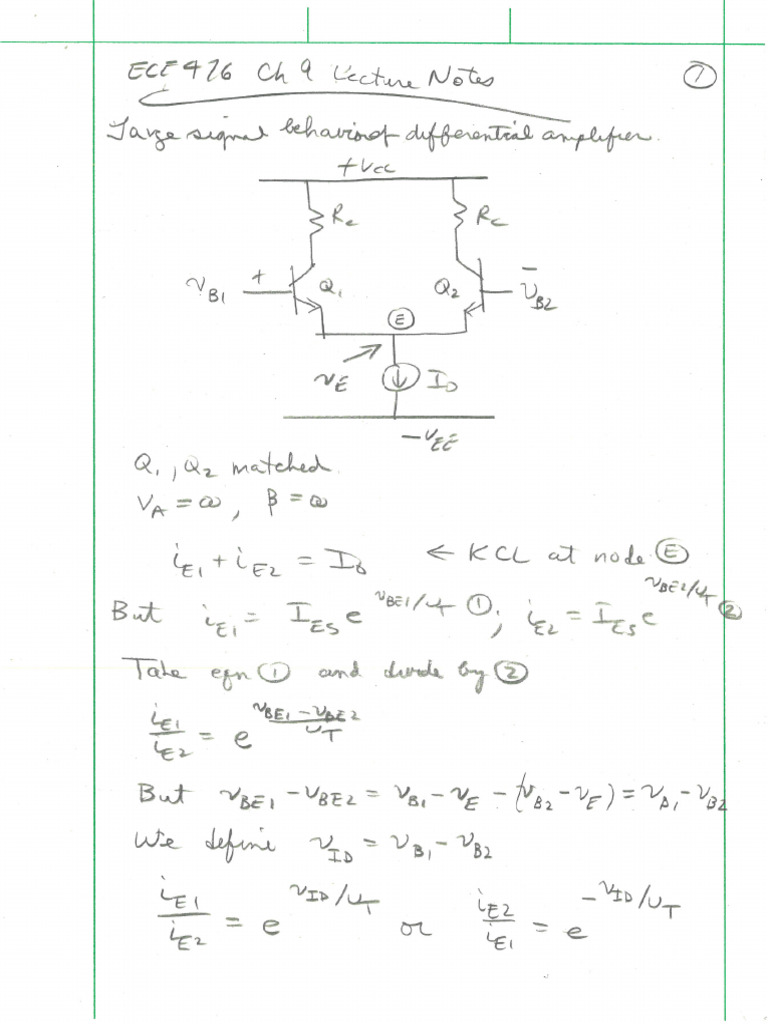 ECE 476 Ch 9 Lecture Notes ①
Large signal behavior of differential amplifier.
+VCC
RC RC
vB1 + Q1 Q2 − vB2
Ⓔ
vE I0
−VEE
Q1, Q2 matched.
VA = ∞, β = ∞
iE1 + iE2 = I0 ← KCL at node Ⓔ
But iE1 = IES e^(vBE1/UT) ①; iE2 = IES e^(vBE2/UT) ②
Take eqn ① and divide by ②
iE1/iE2 = e^((vBE1 − vBE2)/UT)
But vBE1 − vBE2 = vB1 − vE − (vB2 − vE) = vB1 − vB2
We define vID = vB1 − vB2
iE1/iE2 = e^(vID/UT) or iE2/iE1 = e^(−vID/UT)